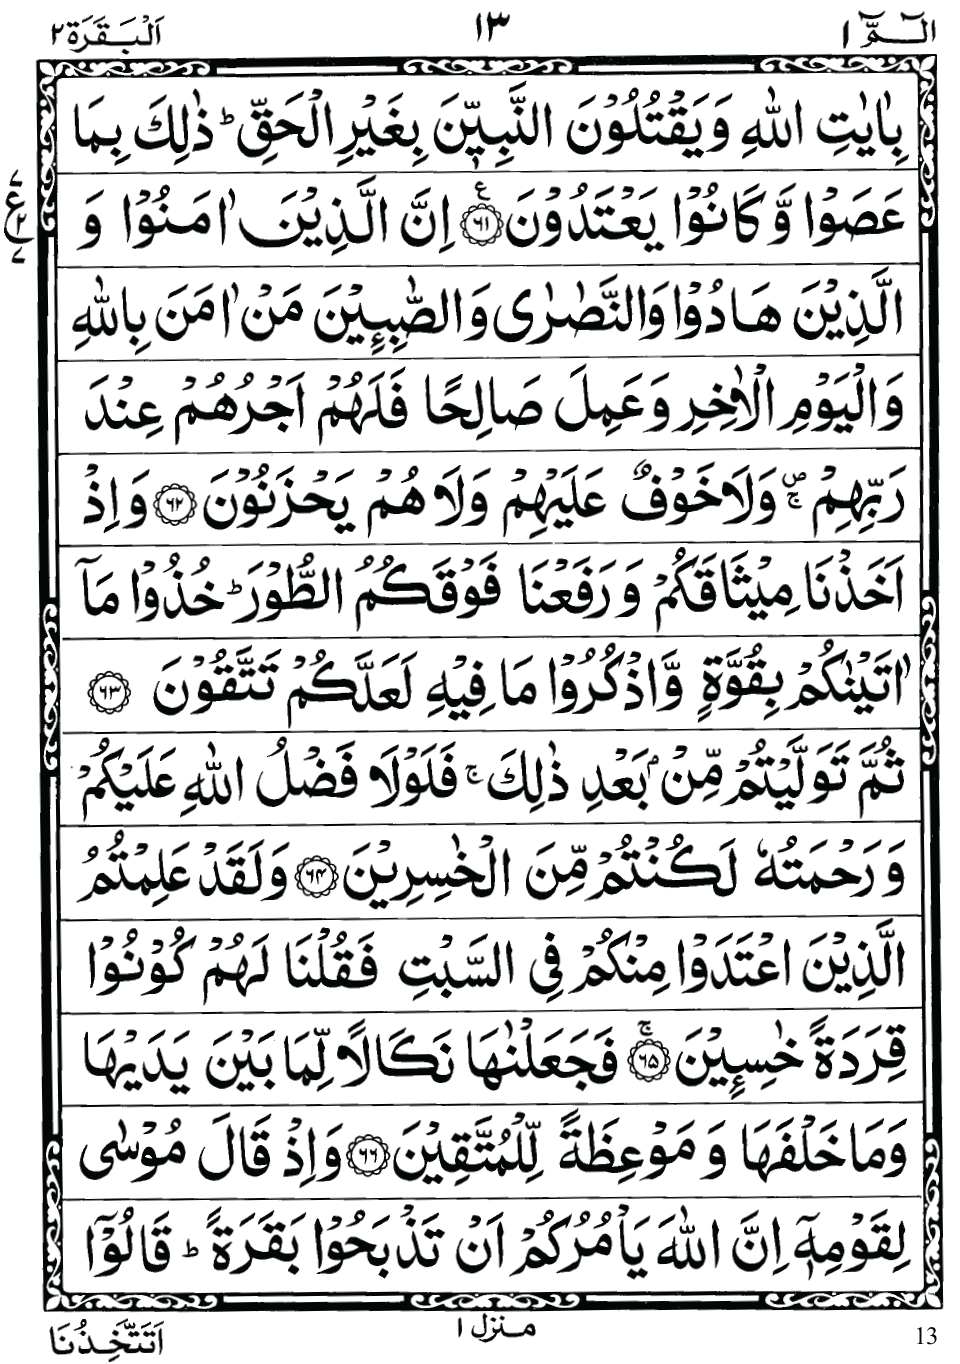 الٓمّٓ ١ ١٣ اَلْبَقَرَة ٢
بِاٰيٰتِ اللّٰهِ وَيَقْتُلُوْنَ النَّبِيّٖنَ بِغَيْرِ الْحَقِّ ؕ ذٰلِكَ بِمَا
عَصَوْا وَّ كَانُوْا يَعْتَدُوْنَ ﴿۶۱﴾ؑ اِنَّ الَّذِيْنَ اٰمَنُوْا وَ
الَّذِيْنَ هَادُوْا وَالنَّصٰرٰى وَالصّٰبِـِٕيْنَ مَنْ اٰمَنَ بِاللّٰهِ
وَالْيَوْمِ الْاٰخِرِ وَعَمِلَ صَالِحًا فَلَهُمْ اَجْرُهُمْ عِنْدَ
رَبِّهِمْ ۪ۚ وَلَا خَوْفٌ عَلَيْهِمْ وَلَا هُمْ يَحْزَنُوْنَ ﴿۶۲﴾ وَاِذْ
اَخَذْنَا مِيْثَاقَكُمْ وَرَفَعْنَا فَوْقَكُمُ الطُّوْرَ ؕ خُذُوْا مَاۤ
اٰتَيْنٰكُمْ بِقُوَّةٍ وَّاذْكُرُوْا مَا فِيْهِ لَعَلَّكُمْ تَتَّقُوْنَ ﴿۶۳﴾
ثُمَّ تَوَلَّيْتُمْ مِّنْۢ بَعْدِ ذٰلِكَ ۚ فَلَوْلَا فَضْلُ اللّٰهِ عَلَيْكُمْ
وَرَحْمَتُهٗ لَكُنْتُمْ مِّنَ الْخٰسِرِيْنَ ﴿۶۴﴾ وَلَقَدْ عَلِمْتُمُ
الَّذِيْنَ اعْتَدَوْا مِنْكُمْ فِى السَّبْتِ فَقُلْنَا لَهُمْ كُوْنُوْا
قِرَدَةً خٰسِـِٕيْنَ ﴿۶۵﴾ۚ فَجَعَلْنٰهَا نَكَالًا لِّمَا بَيْنَ يَدَيْهَا
وَمَا خَلْفَهَا وَ مَوْعِظَةً لِّلْمُتَّقِيْنَ ﴿۶۶﴾ وَاِذْ قَالَ مُوْسٰى
لِقَوْمِهٖۤ اِنَّ اللّٰهَ يَاْمُرُكُمْ اَنْ تَذْبَحُوْا بَقَرَةً ؕ قَالُوْۤا
13 منزل ١ اَتَتَّخِذُنَا